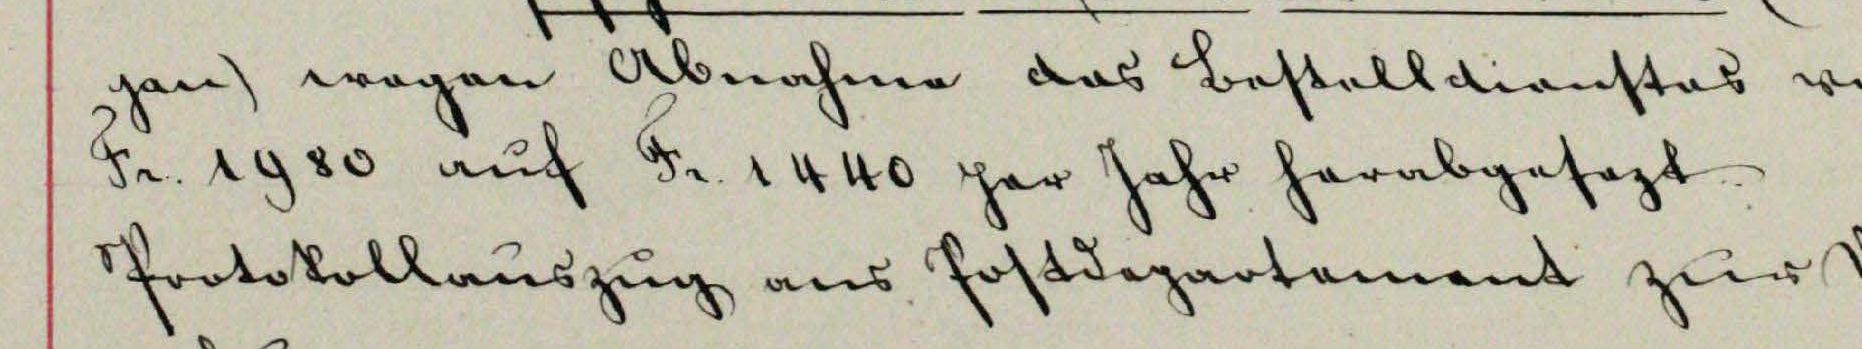 gen) wegen Abnahme des Bestelldienstes
Fr. 1980 auf Fr. 1440 per Jahr herabgesezt.
Protokollauszug ans Postdepartement zur